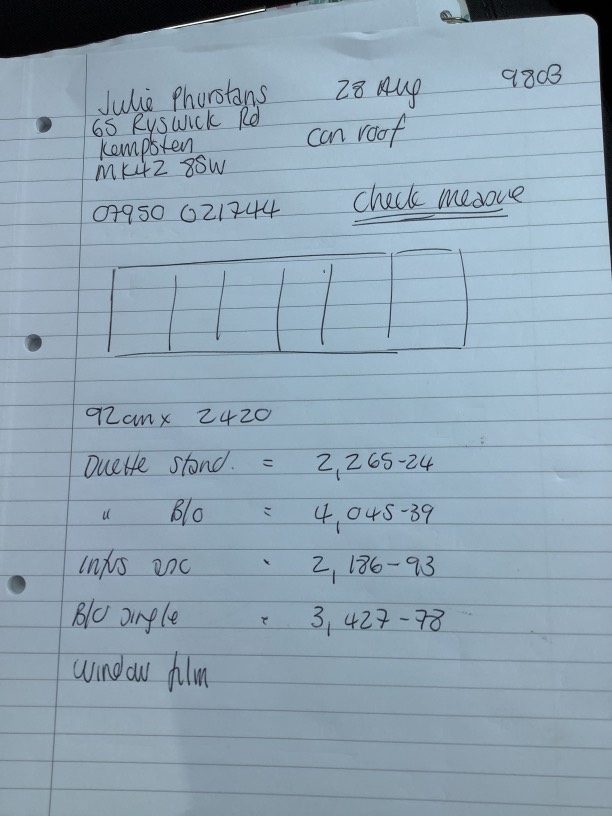 Julie Phurstans 28 Aug 9803
65 Ryswick Rd
Kempsten con roof
MK42 8SW
07950 021744 Check measure
92cm x 2420
Duette stand. = 2,265-24
" B/O = 4,045-39
2,186-93
B/O single = 3,427-78
Window film